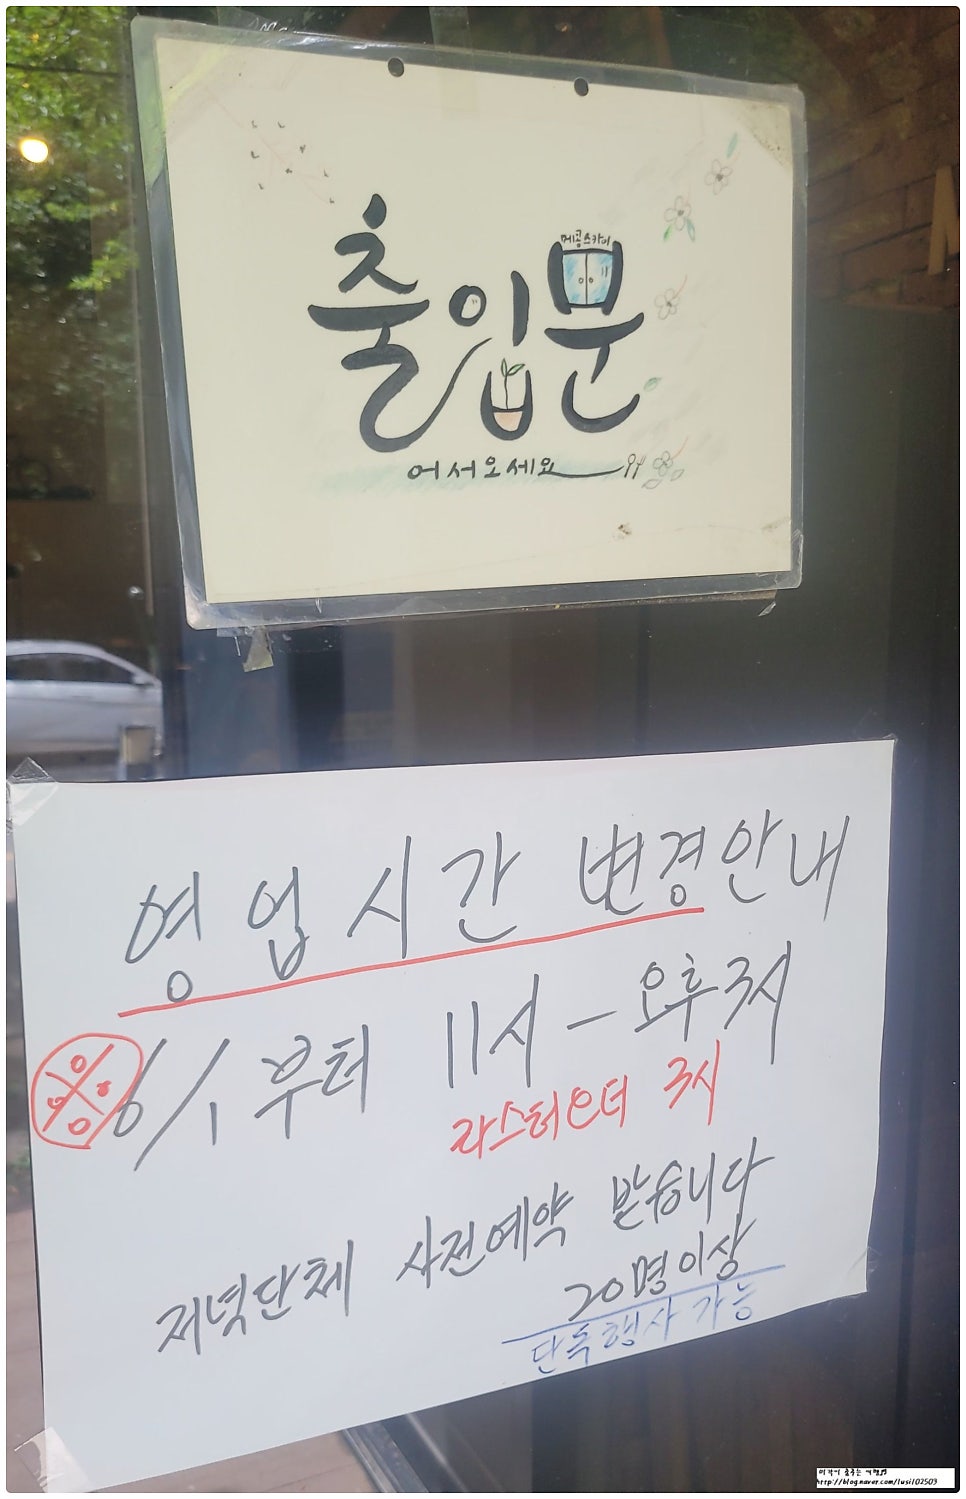 메콩스카이
출입문
어서오세요
영업시간 변경안내
※ 6/1부터 11시 - 요후3시
라스터오더 3시
저녁단체 사전예약 받습니다
20명이상
단독행사 가능
http://blog.naver.com/lusil02503